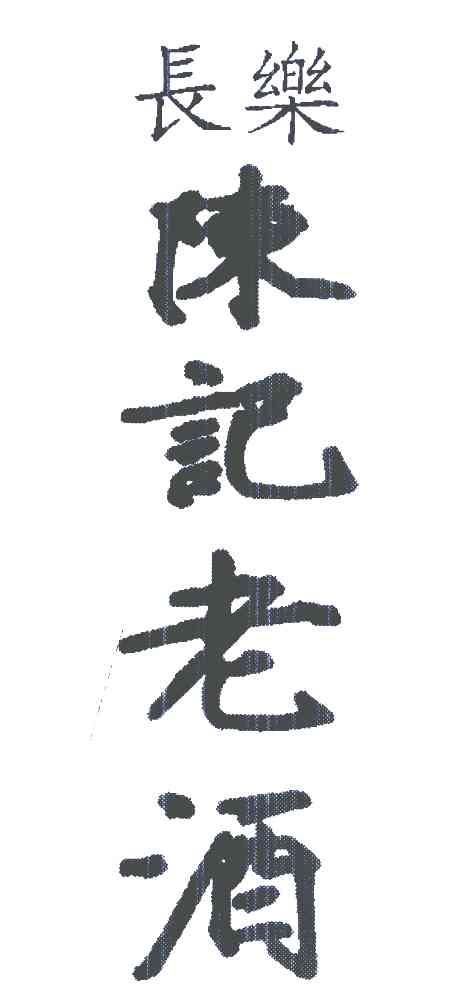 長樂
陳記老酒